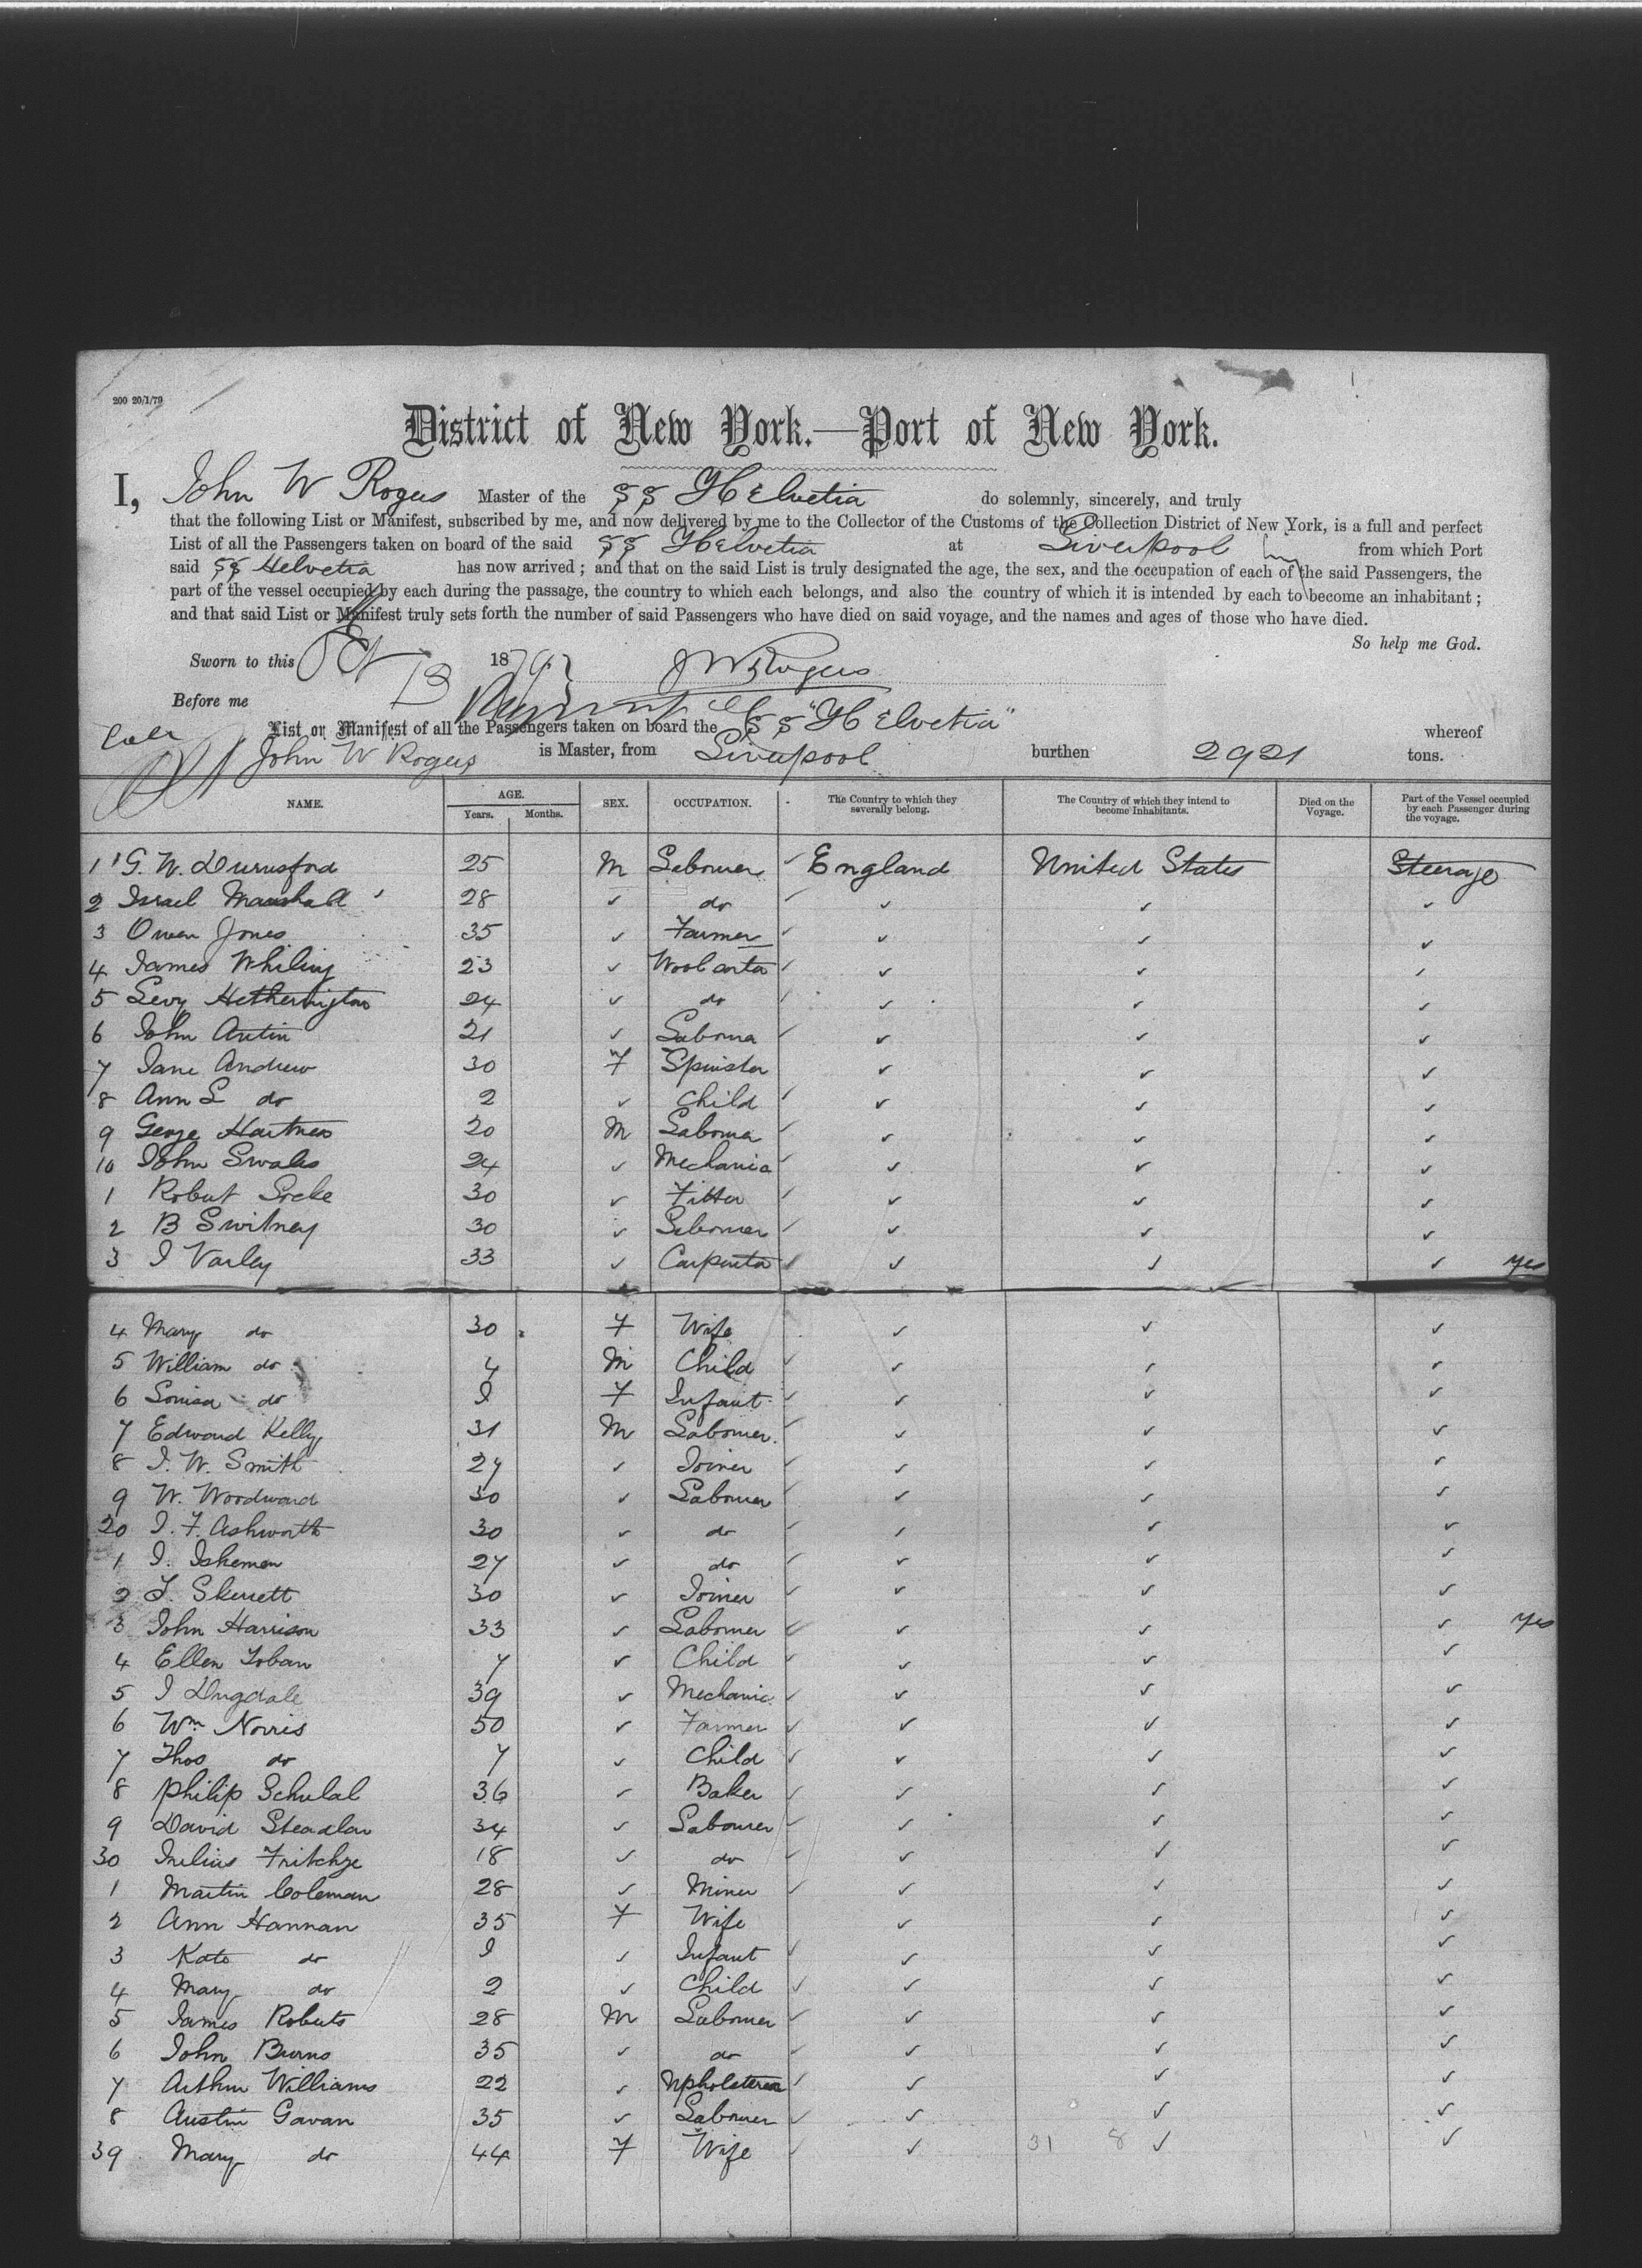 200 20/1/79
District of New York.—Port of New York.
I, John W Rogers Master of the SS Helvetia do solemnly, sincerely, and truly
that the following List or Manifest, subscribed by me, and now delivered by me to the Collector of the Customs of the Collection District of New York, is a full and perfect
List of all the Passengers taken on board of the said SS Helvetia at Liverpool from which Port
said SS Helvetia has now arrived; and that on the said List is truly designated the age, the sex, and the occupation of each of the said Passengers, the
part of the vessel occupied by each during the passage, the country to which each belongs, and also the country of which it is intended by each to become an inhabitant;
and that said List or Manifest truly sets forth the number of said Passengers who have died on said voyage, and the names and ages of those who have died.
So help me God.
Sworn to this Oct 13 1879 J W Rogers
Before me
List or Manifest of all the Passengers taken on board the SS "Helvetia" whereof
John W Rogers is Master, from Liverpool burthen 2921 tons.
NAME. AGE. Years. Months. SEX. OCCUPATION. The Country to which they severally belong. The Country of which they intend to become Inhabitants. Died on the Voyage. Part of the Vessel occupied by each Passenger during the voyage.
1 G. W. Durnsford 25 M Labourer ✓ England United States Steerage
2 Israel Marshall 28 ✓ do ✓ ✓ ✓ ✓
3 Owen Jones 35 ✓ Farmer ✓ ✓ ✓ ✓
4 James Whiling 23 ✓ ✓ ✓ ✓ ✓
5 Levy Hetherington 24 ✓ do ✓ ✓ ✓ ✓
6 John Antin 21 ✓ Labourer ✓ ✓ ✓ ✓
7 Jane Andrew 30 F Spinster ✓ ✓ ✓
8 Ann L do 2 ✓ Child ✓ ✓ ✓ ✓
9 George Hartness 20 M Labourer ✓ ✓ ✓ ✓
10 John Swales 24 ✓ Mechanic ✓ ✓ ✓ ✓
1 Robert Locke 30 ✓ Fitter ✓ ✓ ✓ ✓
2 B Switney 30 ✓ Labourer ✓ ✓ ✓ ✓
3 J Varley 33 ✓ Carpenter ✓ ✓ ✓ ✓ yes
4 Mary do 30 F Wife ✓ ✓ ✓
5 William do 4 M Child ✓ ✓ ✓ ✓
6 Louisa do I F Infant ✓ ✓ ✓ ✓
7 Edward Kelly 31 M Labourer ✓ ✓ ✓ ✓
8 J. W. Smith 27 ✓ Joiner ✓ ✓ ✓ ✓
9 W. Woodward 30 ✓ Labourer ✓ ✓ ✓ ✓
20 J. F. Ashworth 30 ✓ do ✓ ✓ ✓ ✓
1 J. Iskeman 27 ✓ do ✓ ✓ ✓ ✓
2 T. Skerrett 30 ✓ Joiner ✓ ✓ ✓ ✓
3 John Harrison 33 ✓ Labourer ✓ ✓ ✓ ✓ yes
4 Ellen Toban 7 ✓ Child ✓ ✓ ✓ ✓
5 J Dugdale 39 ✓ Mechanic ✓ ✓ ✓ ✓
6 Wm Norris 50 ✓ Farmer ✓ ✓ ✓ ✓
7 Thos do 7 ✓ Child ✓ ✓ ✓ ✓
8 Philip Schulal 36 ✓ Baker ✓ ✓ ✓ ✓
9 David Steadlar 34 ✓ Labourer ✓ ✓ ✓ ✓
30 Julius Fritchze 18 ✓ do ✓ ✓ ✓ ✓
1 Martin Coleman 28 ✓ Miner ✓ ✓ ✓ ✓
2 Ann Hannan 35 F Wife ✓ ✓ ✓
3 Kate do I ✓ Infant ✓ ✓ ✓ ✓
4 Mary do 2 ✓ Child ✓ ✓ ✓ ✓
5 James Roberts 28 M Labourer ✓ ✓ ✓ ✓
6 John Burns 35 ✓ do ✓ ✓ ✓ ✓
7 Arthur Williams 22 ✓ Upholsterer ✓ ✓ ✓ ✓
8 Austin Gavan 35 ✓ Labourer ✓ ✓ ✓ ✓
39 Mary do 44 F Wife ✓ ✓ 31 8 ✓ ✓